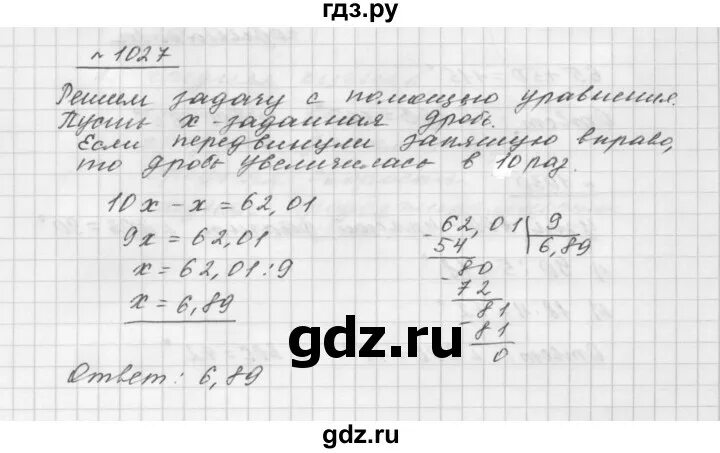 гдз.ру
№ 1027
Решим задачу с помощью уравнения.
Пусть х - заданная дробь.
Если передвинули запятую вправо,
то дробь увеличилась в 10 раз.
10х - х = 62,01
9х = 62,01
х = 62,01 : 9
х = 6,89
- 62,01 | 9
54 | 6,89
- 80
72
- 81
81
0
Ответ: 6,89
gdz.ru
gdz.ru